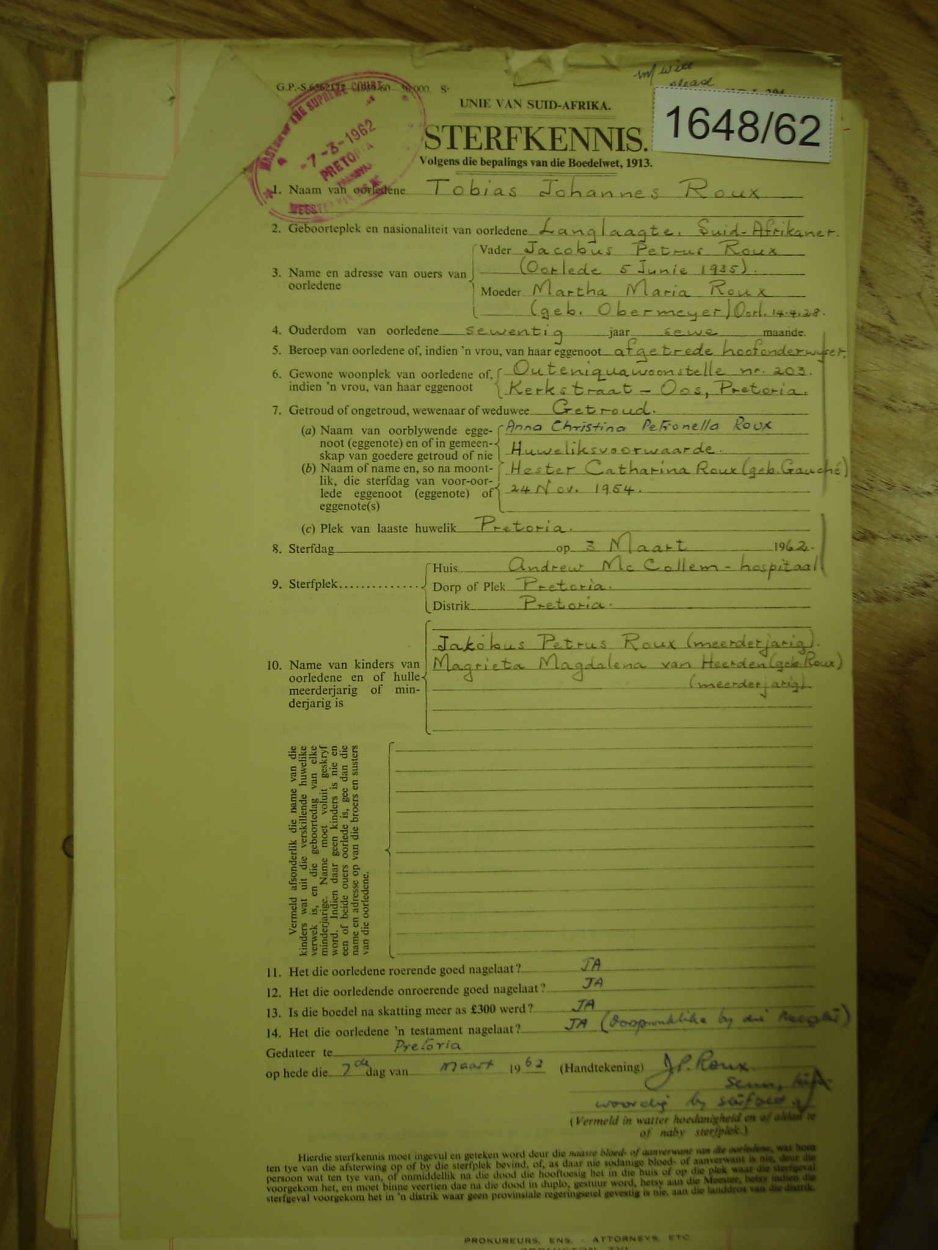 G.P.-S.
1648/62
UNIE VAN SUID-AFRIKA.
STERFKENNIS.
Volgens die bepalings van die Boedelwet, 1913.
MASTER OF THE SUPREME COURT
-7-3-1962
PRETORIA
1. Naam van oorledene Tobias Johannes Roux
2. Geboorteplek en nasionaliteit van oorledene Langlaagte. Suid-Afrikaner.
3. Name en adresse van ouers van oorledene
Vader Jacobus Petrus Roux
(Oorlede 5 Junie 1935).
Moeder Martha Maria Roux
(geb. Obermeyer) Oorl. 14.4.28.
4. Ouderdom van oorledene sewentig jaar sewe maande.
5. Beroep van oorledene of, indien 'n vrou, van haar eggenoot afgetrede hoofonderwyser
6. Gewone woonplek van oorledene of, indien 'n vrou, van haar eggenoot
Outeniquawoonstelle nr. 203.
Kerkstraat - Oos, Pretoria.
7. Getroud of ongetroud, wewenaar of weduwee Getroud.
(a) Naam van oorblywende eggenoot (eggenote) en of in gemeenskap van goedere getroud of nie
Anna Christina Petronella Roux
Huweliksvoorwaarde.
(b) Naam of name en, so na moontlik, die sterfdag van voor-oorlede eggenoot (eggenote) of eggenote(s)
Hester Catharina Roux (geb. Gauché)
24 Nov. 1954.
(c) Plek van laaste huwelik Pretoria.
8. Sterfdag op 3 Maart 1962.
9. Sterfplek
Huis Andrew Mc Collem-hospitaal
Dorp of Plek Pretoria.
Distrik Pretoria.
10. Name van kinders van oorledene en of hulle meerderjarig of minderjarig is
Jakobus Petrus Roux (meerderjarig).
Magrieta Magdalena van Heerden (geb. Roux)
(meerderjarig).
Vermeld afsonderlik die name van die
kinders wat uit die verskillende huwelike
verwek is, en die geboortedag van elke
minderjarige. Name moet voluit geskryf
word. Indien daar geen kinders is nie en
een of beide ouers oorlede is, gee dan die
name en adresse op van die broers en susters
van die oorledene.
11. Het die oorledene roerende goed nagelaat? JA
12. Het die oorledende onroerende goed nagelaat? JA
13. Is die boedel na skatting meer as £300 werd? JA
14. Het die oorledene 'n testament nagelaat? JA (Oorspronklike by die
Gedateer te Pretoria
op hede die 7de dag van Maart 1962 (Handtekening) J.P. Roux.
Seun,
woordig by sterfbed
(Vermeld in watter hoedanigheid en of aldan te
of naby sterfplek.)
Hierdie sterfkennis moet ingevul en geteken word deur die naaste bloed- of aanverwant van die oorledene, wat hom
ten tye van die afsterwing op of by die sterfplek bevind, of, as daar nie sodanige bloed- of aanverwant is nie, deur die
persoon wat ten tye van, of onmiddellik na die dood die hooftoesig het in die huis of op die plek waar die sterfgeval
voorgekom het, en moet binne veertien dae na die dood in duplo, gestuur word, hetsy aan die Meester, hetsy indien die
sterfgeval voorgekom het in 'n distrik waar geen provinsiale regeringsetel gevestig is nie, aan die landdros van die distrik.
PROKUREURS, ENS. - ATTORNEYS, ETC.